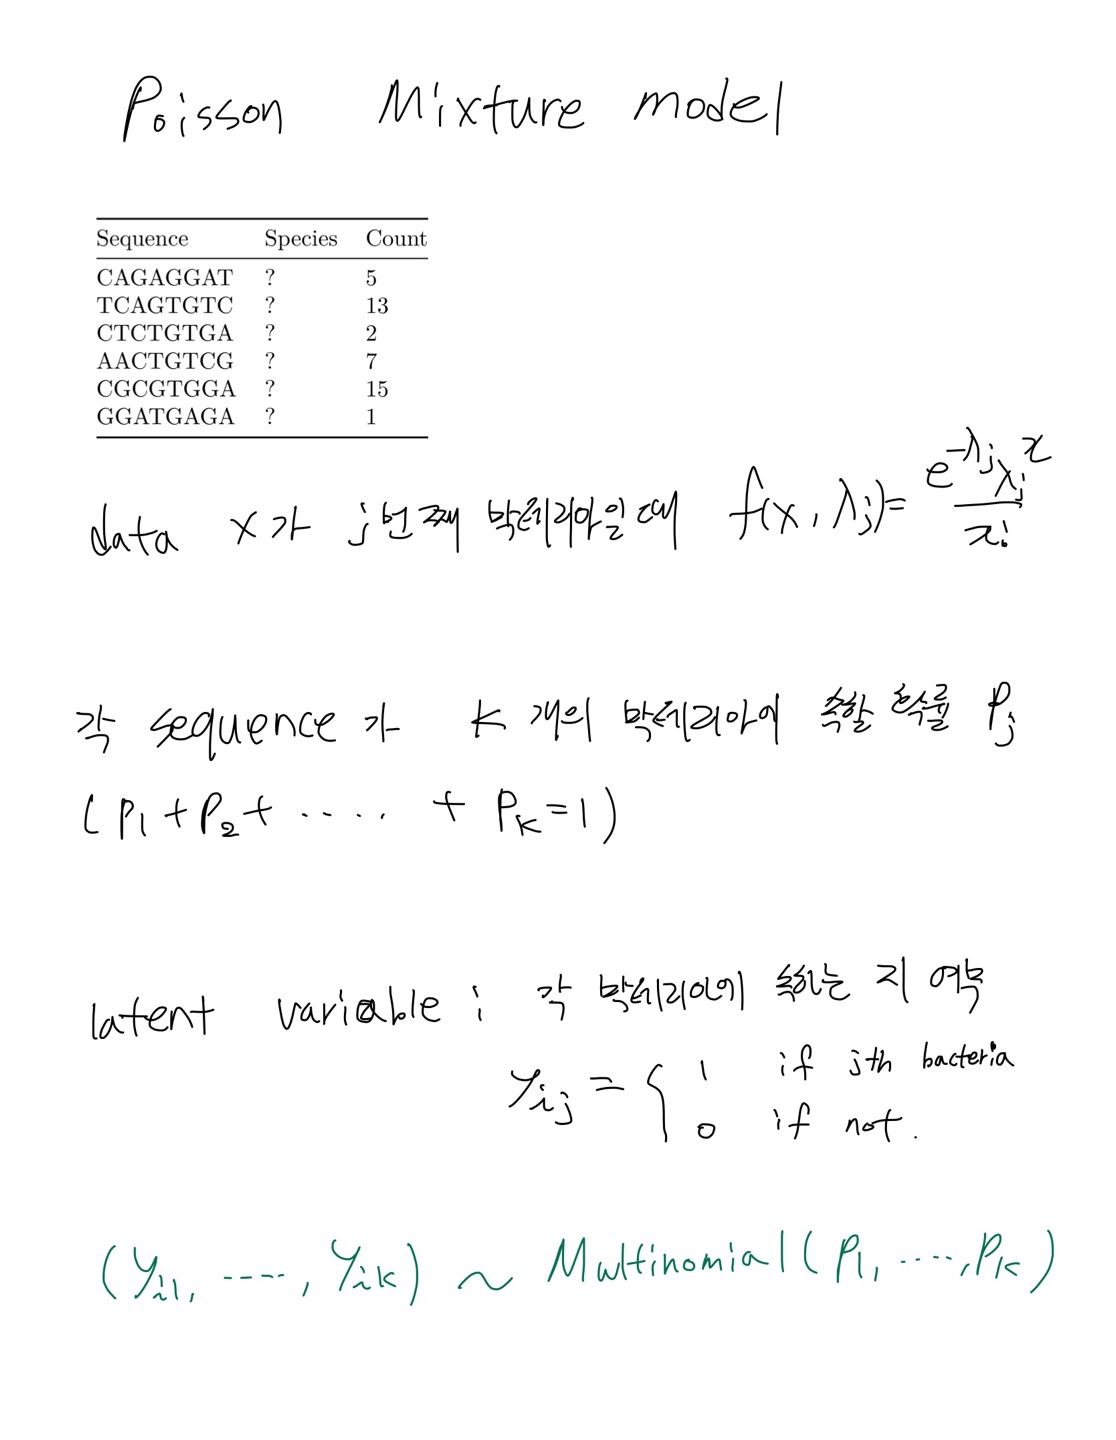 Poisson Mixture model
Sequence Species Count
CAGAGGAT ? 5
TCAGTGTC ? 13
CTCTGTGA ? 2
AACTGTCG ? 7
CGCGTGGA ? 15
GGATGAGA ? 1
data x가 j번째 박테리아일 때 f(x, λj)= e^-λj λj^x / x!
각 sequence가 K개의 박테리아에 속할 확률 Pj
(P1+P2+ ..... + Pk=1)
latent variable : 각 박테리아에 속하는 지 여부
Yij = { 1 if jth bacteria
0 if not.
(Yi1, ----, Yik) ~ Multinomial(P1, ----, Pk)